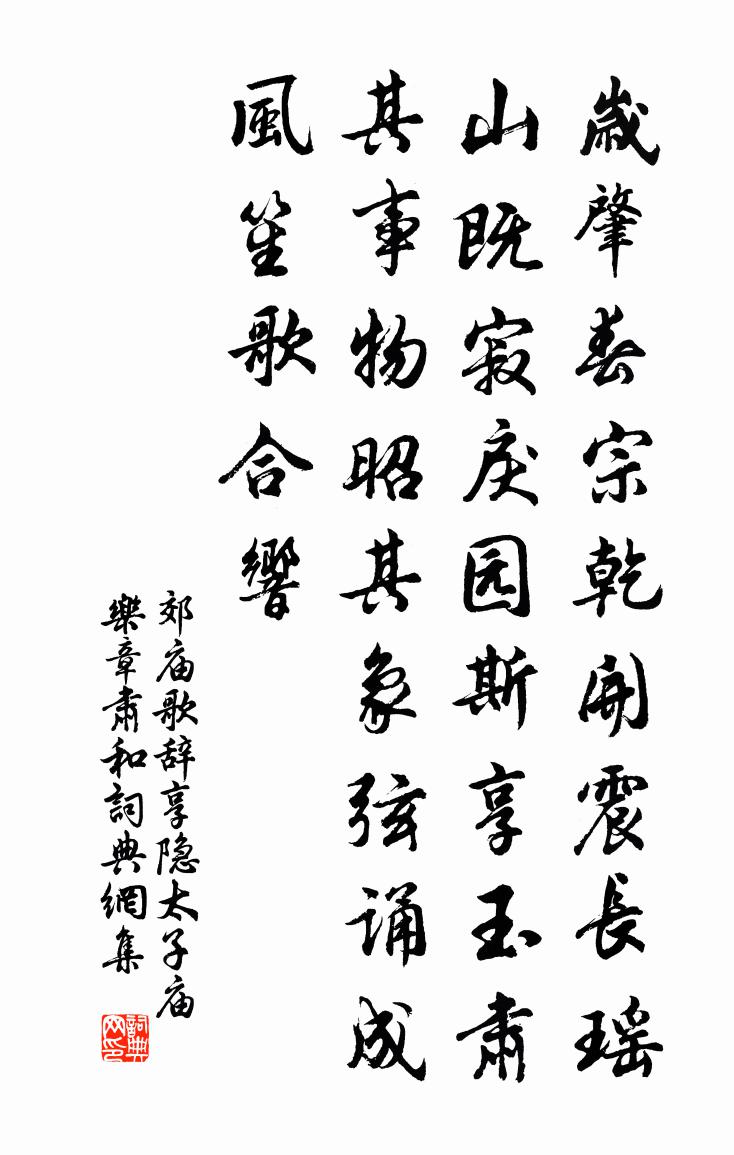 歲肇春宗乾開震長瑶
山既寂戾园斯享玉肅
其事物昭其象弦诵成
風笙歌合響
郊庙歌辞享隐太子庙
樂章肅和詞典網集
詞典网印